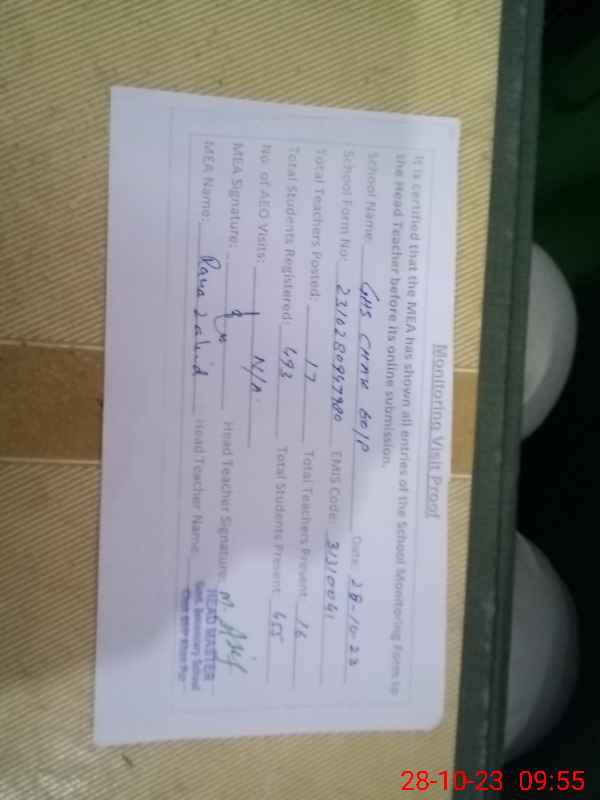 Monitoring Visit Proof
It is certified that the MEA has shown all entries of the School Monitoring Form to
the Head Teacher before its online submission.
School Name: GHS CHAK 60/P Date: 28-10-23
School Form No: 231028094 EMIS Code: 31310041
Total Teachers Posted: 17 Total Teachers Present 16
Total Students Registered: 693 Total Students Present 655
No. of AEO Visits: N/A
MEA Signature: Head Teacher Signature: M. Asif
MEA Name: Rana Zahid Head Teacher Name:
HEAD MASTER
Govt. Secondary School
28-10-23 09:55